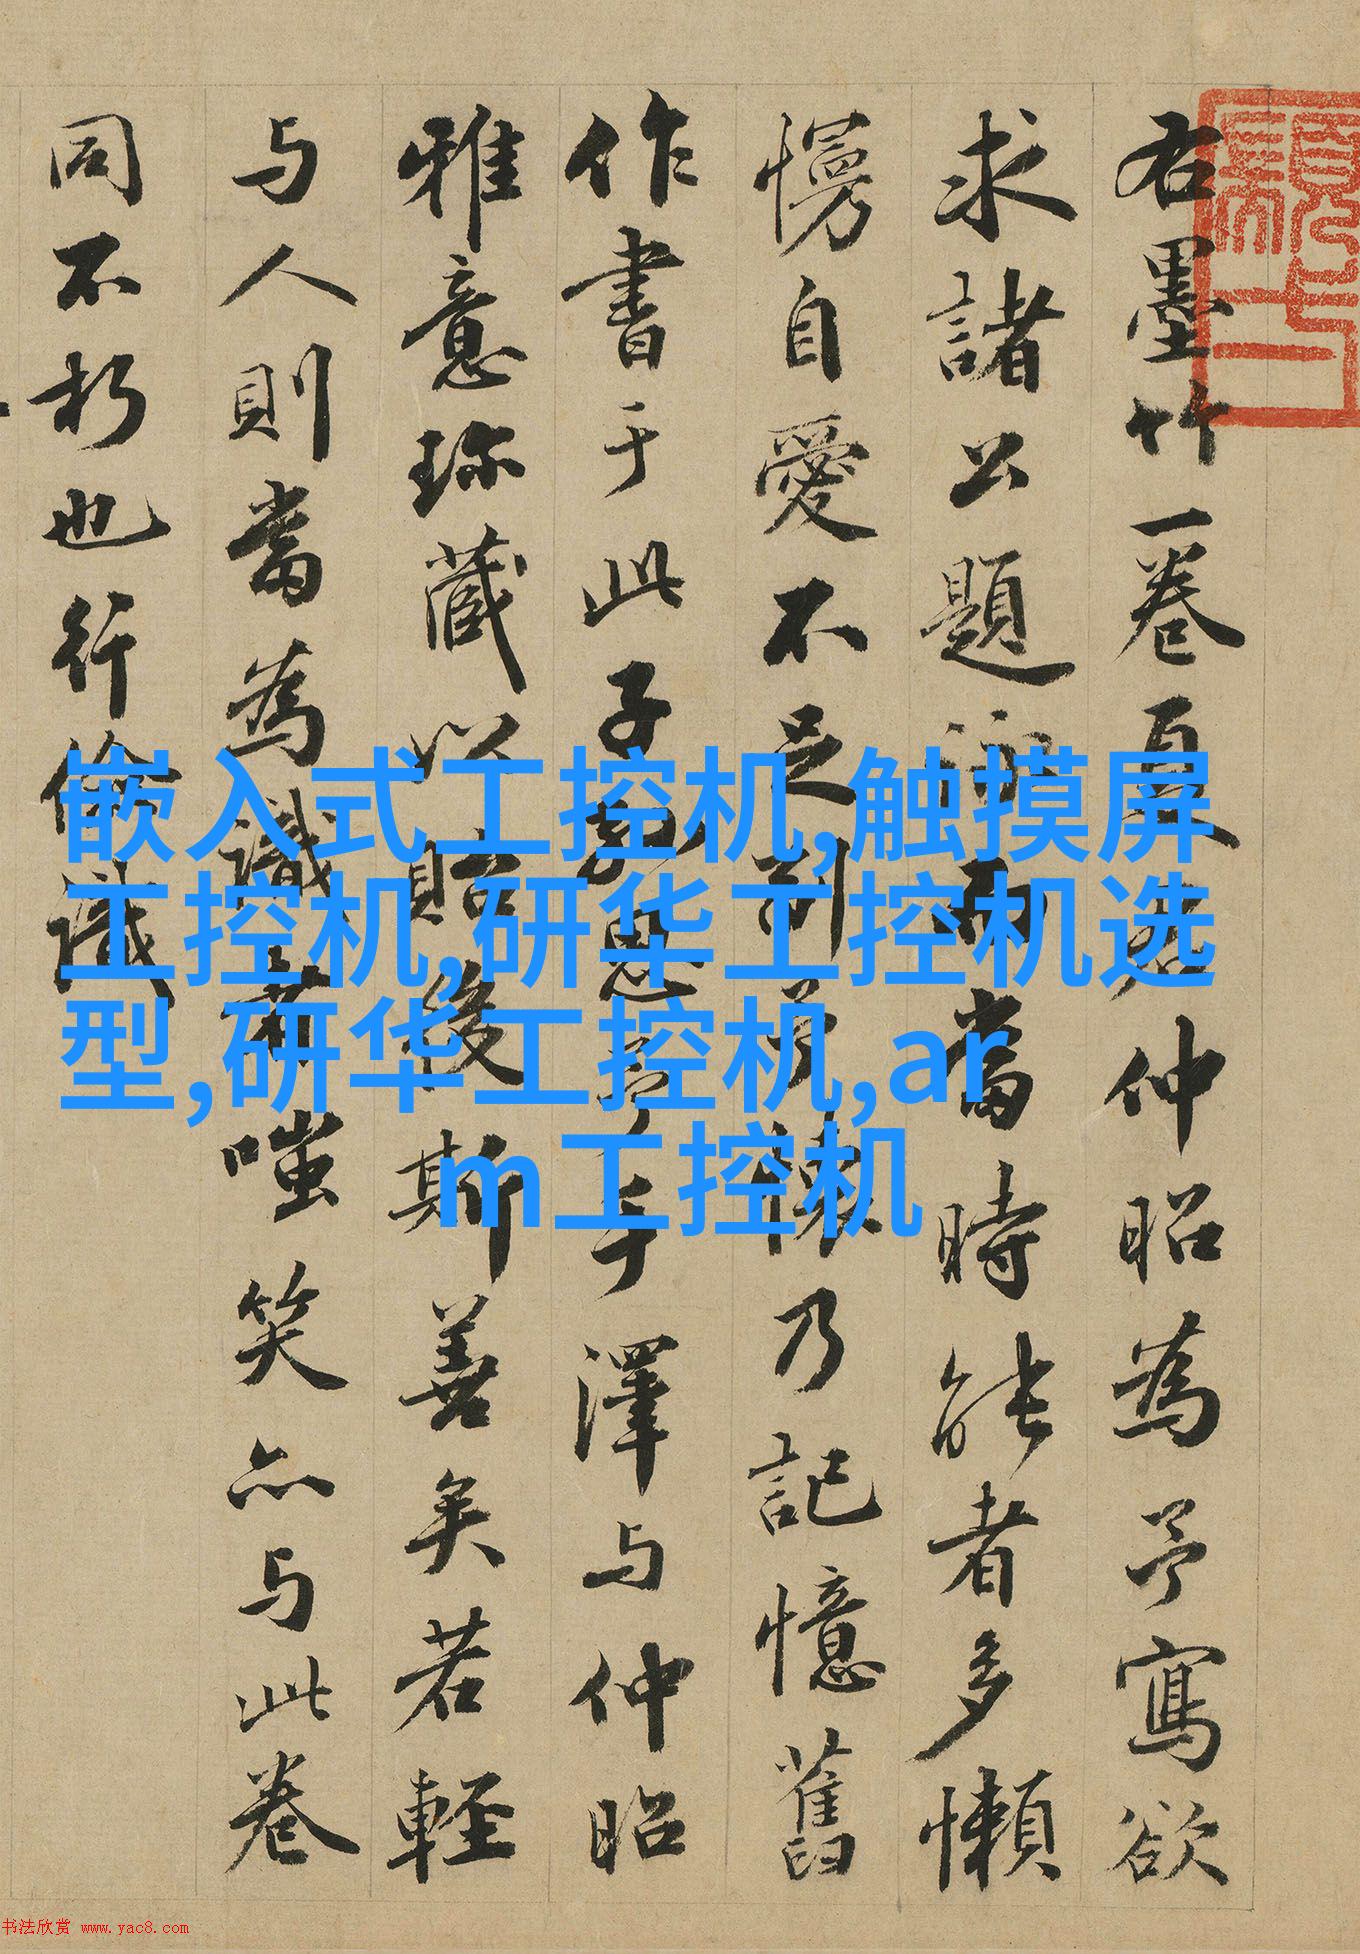 右墨竹一卷夏君仲昭為予寫欲
求諸公題詠而當時能者多懶
慢自愛不足予懷乃記憶舊
作書于此子孫思予手澤与仲昭
雅意珎藏以貽後斯善矣若輕
与人則當為識者嗤笑亦与此卷
同不朽也行儉識
嵌入式工控机,触摸屏
工控机,研华工控机选
型,研华工控机,ar
m工控机
书法欣赏 www.yac8.com